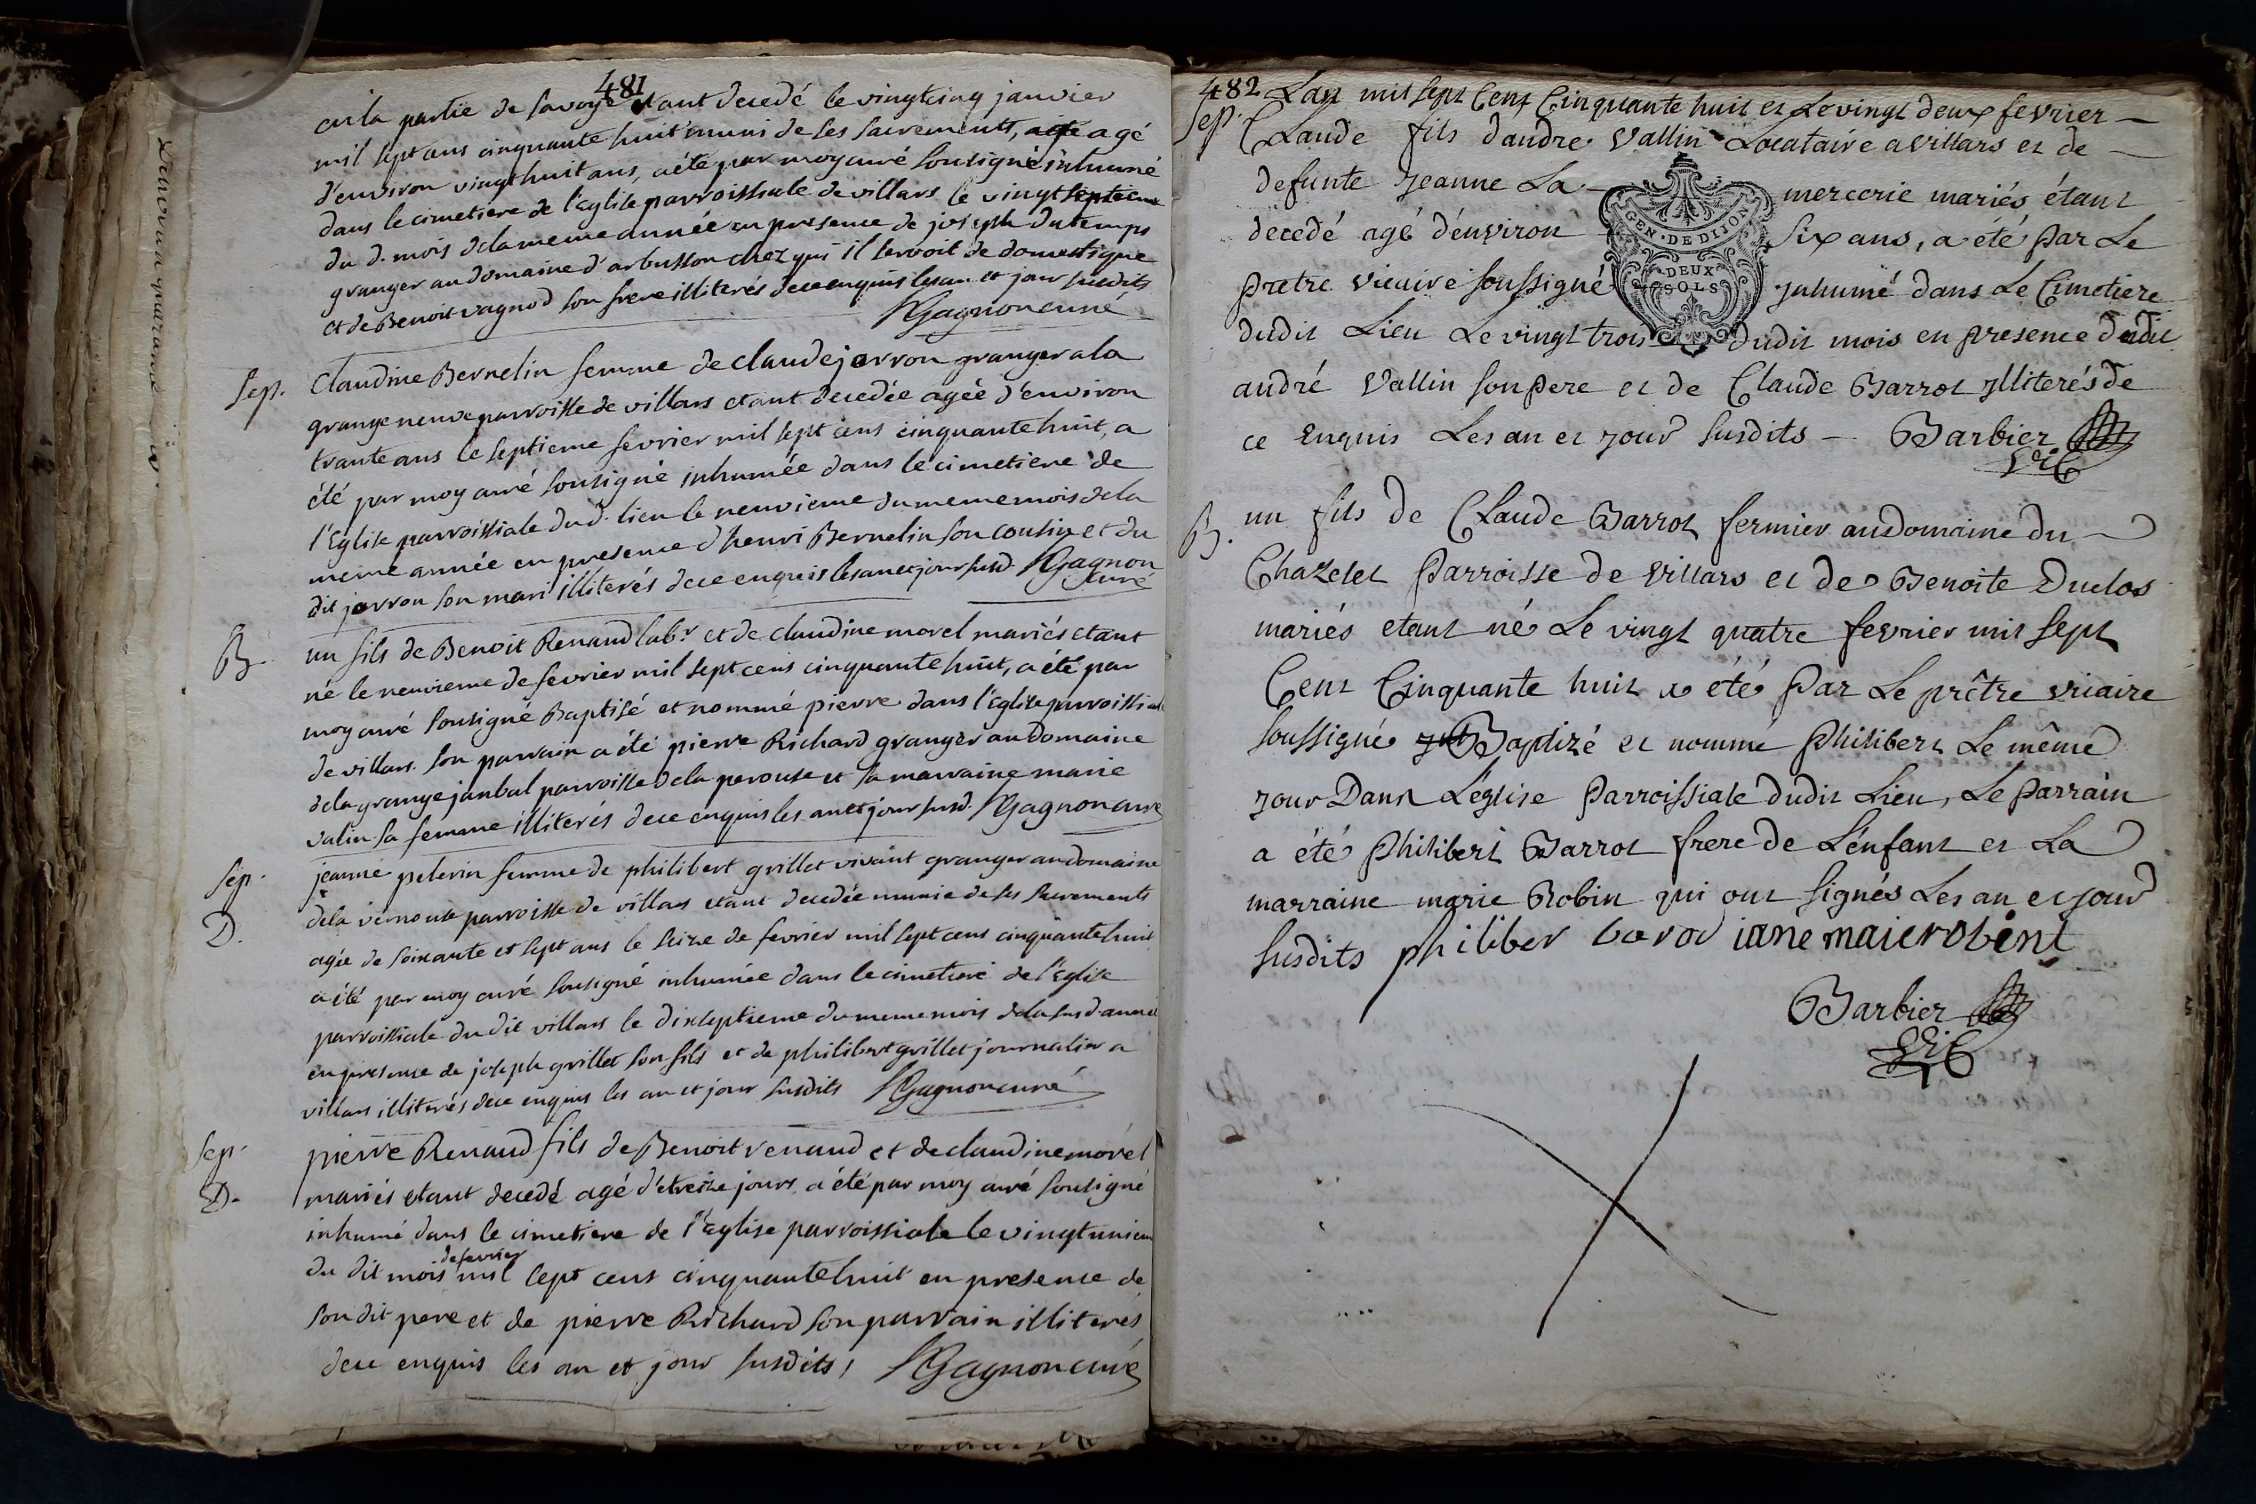 481
en la partie de savoye etant decedé le vingtcinq janvier
mil sept cens cinquante huit muni de ses sacrements, agé
d'environ vingt huit ans, a été par moy curé sousigné inhumé
dans le cimetiere de l'Eglise parroissiale de villars le vingt septieme
du d. mois de la meme année en presence de joseph dutemps
granger au domaine d'arbusson chez qui il servoit de domestique
et de Benoit vagnod son frere illiterés de ce enquis les an et jour susdits
Gagnon curé
Sep. Claudine Bernelin femme de claude jorron granger a la
grange neuve parroisse de villars etant decedée agée d'environ
trante ans le septieme fevrier mil sept cens cinquante huit, a
été par moy curé sousigné inhumée dans le cimetiere de
l'Eglise parroissiale du d. lieu le neuvieme du meme mois de la
meme année en presence d'henri Bernelin son cousin et du
dit jorron son mari illiterés de ce enquis les an et jour susd. Gagnon
curé
B. un fils de Benoit Renaud labr. et de claudine morel mariés etant
né le neuvieme de fevrier mil sept cens cinquante huit, a été par
moy curé sousigné Baptisé et nommé pierre dans l'Eglise parroissiale
de villars. son parrain a été pierre Richard granger au Domaine
de la grange janbal parroisse de la perouse et sa marraine marie
valin sa femme illiterés de ce enquis les an et jour susd. Gagnon curé
Sep. jeanne pelerin femme de philibert grillet vivant granger au domaine
D. de la vernouse parroisse de villars etant decedée munie de ses sacrements
agée de soixante et sept ans le seize de fevrier mil sept cens cinquante huit
a été par moy curé sousigné inhumée dans le cimetiere de l'Eglise
parroissiale du dit villars le dixseptieme du meme mois de la susd. année
en presence de joseph grillet son fils et de philibert grillet journalier a
villars illiterés de ce enquis les an et jour susdits Gagnon curé
Sep. pierre Renaud fils de Benoit renaud et de claudine morel
D. mariés etant decedé agé de treize jours a été par moy curé sousigné
inhumé dans le cimetiere de l'Eglise parroissiale le vingt unieme
de fevrier
du dit mois mil sept cent cinquante huit en presence de
son dit pere et de pierre Richard son parrain illiterés
de ce enquis les an et jour susdits, Gagnon curé
482 Lan mil sept Cent Cinquante huit et Le vingt deux fevrier
Sep. Claude fils dandré Vallin Locataire a Villars et de
defunte Jeanne La mercerie mariés étant
decedé agé d'énviron six ans, a été par Le
prêtre vicaire soussigné Inhumé dans Le Cimetiere
GEN · DE DIJON
DEUX
SOLS
dudit Lieu Le vingt trois dudit mois en presence dudit
andré Vallin son pere et de Claude Barrot Illiterés de
ce Enquis Les an et jour susdits — Barbier
Vic
B. un fils de Claude Barrot fermier au domaine du
Chazelet Parroisse de Villars et de Benoite Duclos
mariés etant né Le vingt quatre fevrier mil sept
Cent Cinquante huit a été Par Le prêtre vicaire
soussigné Baptizé et nommé Philibert Le même
jour Dans L'église Parroissiale dudit Lieu, Le Parrain
a été Philibert Barrot frere de L'énfant et La
marraine marie Robin qui ont signés Les an et jour
susdits philiber barod iane maierobint
Barbier
Vic